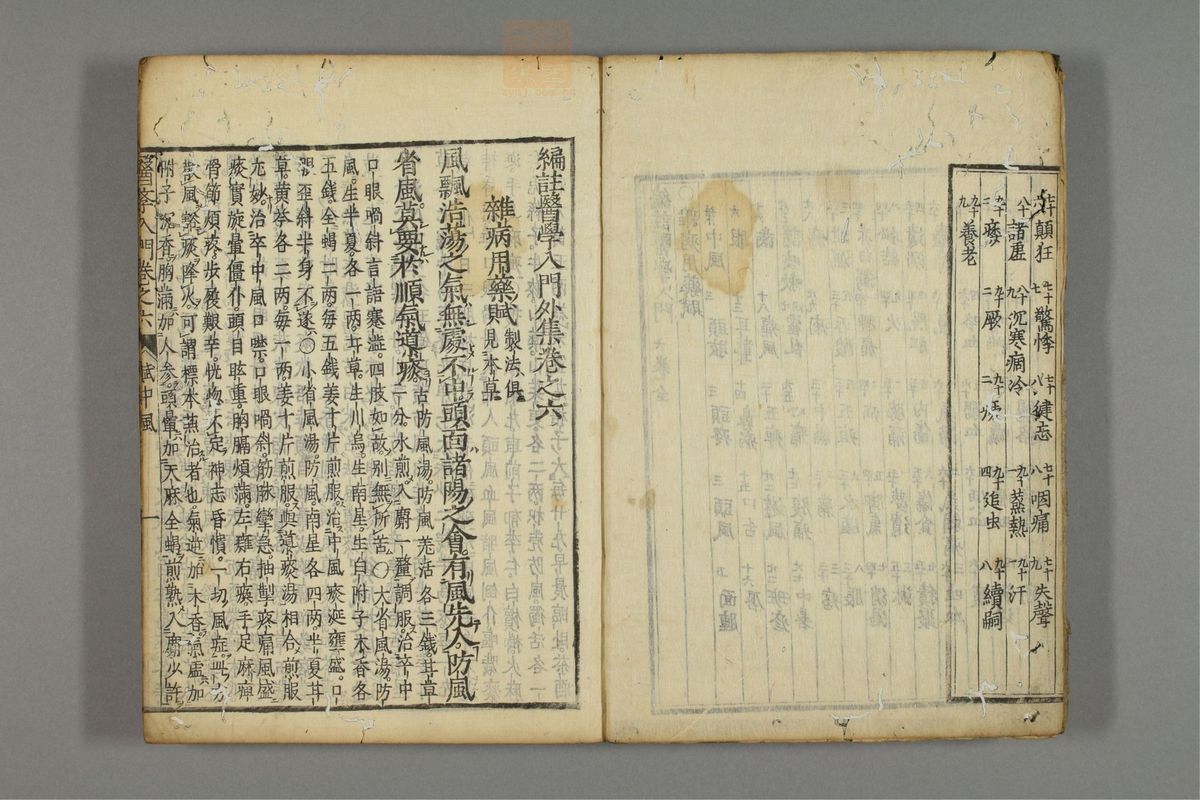 顛狂 驚悸 健忘 咽痛 失聲
諸虛 沉寒痼冷 蒸熱 汗
痿 厥 追虫 續嗣
養老
編註醫學入門外集卷之六
雜病用藥賦 製法俱見本草
風飄浩蕩之氣無處不中頭百諸陽之會有風先入防風
省風莫要於順氣道痰 古防風湯防風羌活各三錢甘草一分水煎入麝一釐調服治卒中
口眼喎斜言語蹇澁四肢如故別無所苦○大省風湯防
風生半夏各一兩甘草生川烏生南星生白附子木香各
五錢全蝎二兩每五錢姜十片煎服治中風痰涎壅盛口
眼歪斜半身不遂○小省風湯防風南星各四兩半夏甘
草黃芩各二兩每一兩姜十片煎服與道痰湯相合煎服
尤妙治卒中風口噤口眼喎斜筋脉攣急抽掣疼痛風盛
痰實旋暈僵仆頭目眩重胸膈煩滿左癱右瘓手足麻痺
骨節煩疼步履艱辛恍惚不定神志昏憒一切風症此方
散風豁痰降火可謂標本兼治者也氣逆加木香氣虛加
附子沉香胸滿加人參頭暈加天麻全蝎煎熟入麝少許
醫學入門卷之六 賦中風 一